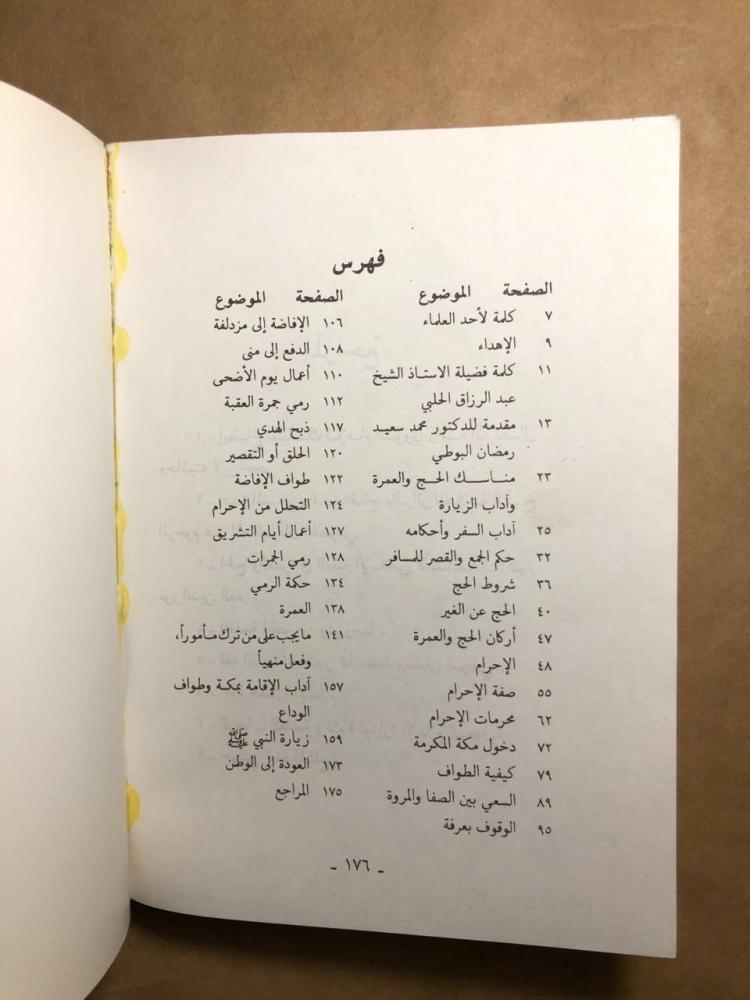 فهرس
الصفحة الموضوع
٧ كلمة لأحد العلماء
٩ الإهداء
١١ كلمة فضيلة الاستاذ الشيخ
عبد الرزاق الحلبي
١٣ مقدمة للدكتور محمد سعيد
رمضان البوطي
٢٣ مناسك الحج والعمرة
وآداب الزيارة
٢٥ آداب السفر وأحكامه
٣٢ حكم الجمع والقصر للمسافر
٣٦ شروط الحج
٤٠ الحج عن الغير
٤٧ أركان الحج والعمرة
٤٨ الإحرام
٥٥ صفة الإحرام
٦٢ محرمات الإحرام
٧٢ دخول مكة المكرمة
٧٩ كيفية الطواف
٨٩ السعي بين الصفا والمروة
٩٥ الوقوف بعرفة
الصفحة الموضوع
١٠٦ الإفاضة إلى مزدلفة
١٠٨ الدفع إلى منى
١١٠ أعمال يوم الأضحى
١١٢ رمي جمرة العقبة
١١٧ ذبح الهدي
١٢٠ الحلق أو التقصير
١٢٢ طواف الإفاضة
١٢٤ التحلل من الإحرام
١٢٧ أعمال أيام التشريق
١٢٨ رمي الجمرات
١٣٤ حكمة الرمي
١٣٨ العمرة
١٤١ مايجب على من ترك مأموراً،
وفعل منهياً
١٥٧ آداب الإقامة بمكة وطواف
الوداع
١٥٩ زيارة النبي ﷺ
١٧٣ العودة إلى الوطن
١٧٥ المراجع
- ١٧٦ -